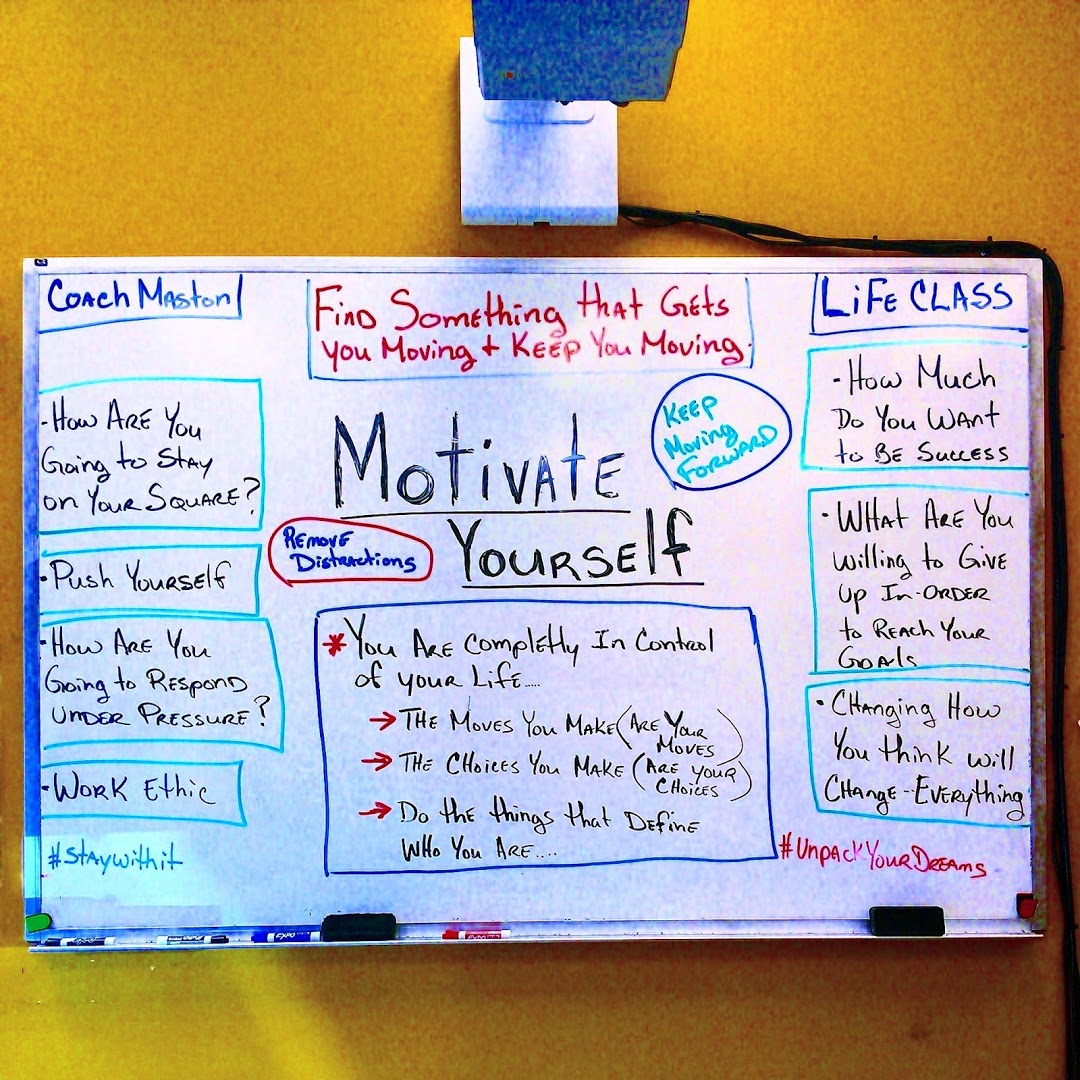 Coach Maston
Find Something that Gets
you Moving + Keep You Moving.
LiFE CLASS
-How Are You
Going to Stay
on Your Square?
•Push Yourself
•How Are You
Going to Respond
Under Pressure?
-Work Ethic
#Staywithit
Motivate
Yourself
Keep
Moving
Forward
Remove
Distractions
*You Are Completly In Control
of your Life.....
→The Moves You Make (Are Your
Moves)
→The Choices You Make (Are your
Choices)
→Do the things that Define
Who You Are....
-How Much
Do You Want
to Be Success
•What Are You
willing to Give
up In-Order
to Reach Your
Goals
•Changing How
You think will
Change-Everything
#UnpackYourDreams
EXPO